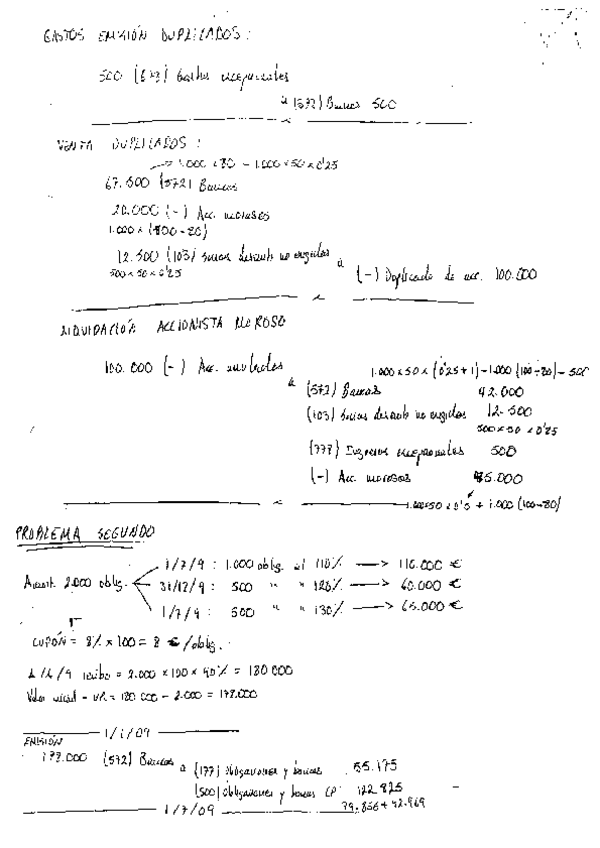 GASTOS EMISIÓN DUPLICADOS:
500 (678) Gastos excepcionales
a (572) Bancos 500
VENTA DUPLICADOS:
→ 1.000 x 80 - 1.000 x 50 x 0'25
67.500 (572) Bancos
20.000 (-) Acc. morosos
1.000 x (100-80)
12.500 (103) Socios desemb no exigidos
500 x 50 x 0'25
a
(-) Duplicado de acc. 100.000
LIQUIDACIÓN ACCIONISTA MOROSO
100.000 (-) Acc. anulados
a
1.000 x 50 x (0'25+1) - 1.000 (100-80) - 500
(572) Bancos 42.000
(103) Socios desemb no exigidos 12.500
500 x 50 x 0'25
(778) Ingresos excepcionales 500
(-) Acc. morosos 45.000
1.000x50 x 0'5 + 1.000 (100-80)
PROBLEMA SEGUNDO
1/7/9 : 1.000 oblig. al 110% → 110.000 €
Amort. 2.000 oblig. 31/12/9 : 500 " " 120% → 60.000 €
1/7/9 : 500 " " 130% → 65.000 €
CUPÓN = 8% x 100 = 8 €/oblig.
1/1/9 recibo = 2.000 x 100 x 90% = 180 000
Valor inicial - VR = 180 000 - 2.000 = 178.000
1/1/09
EMISIÓN
178.000 (572) Bancos a (177) Obligaciones y bonos 55.175
(500) Obligaciones y bonos CP 122.825
1/7/09 79.856 + 42.969